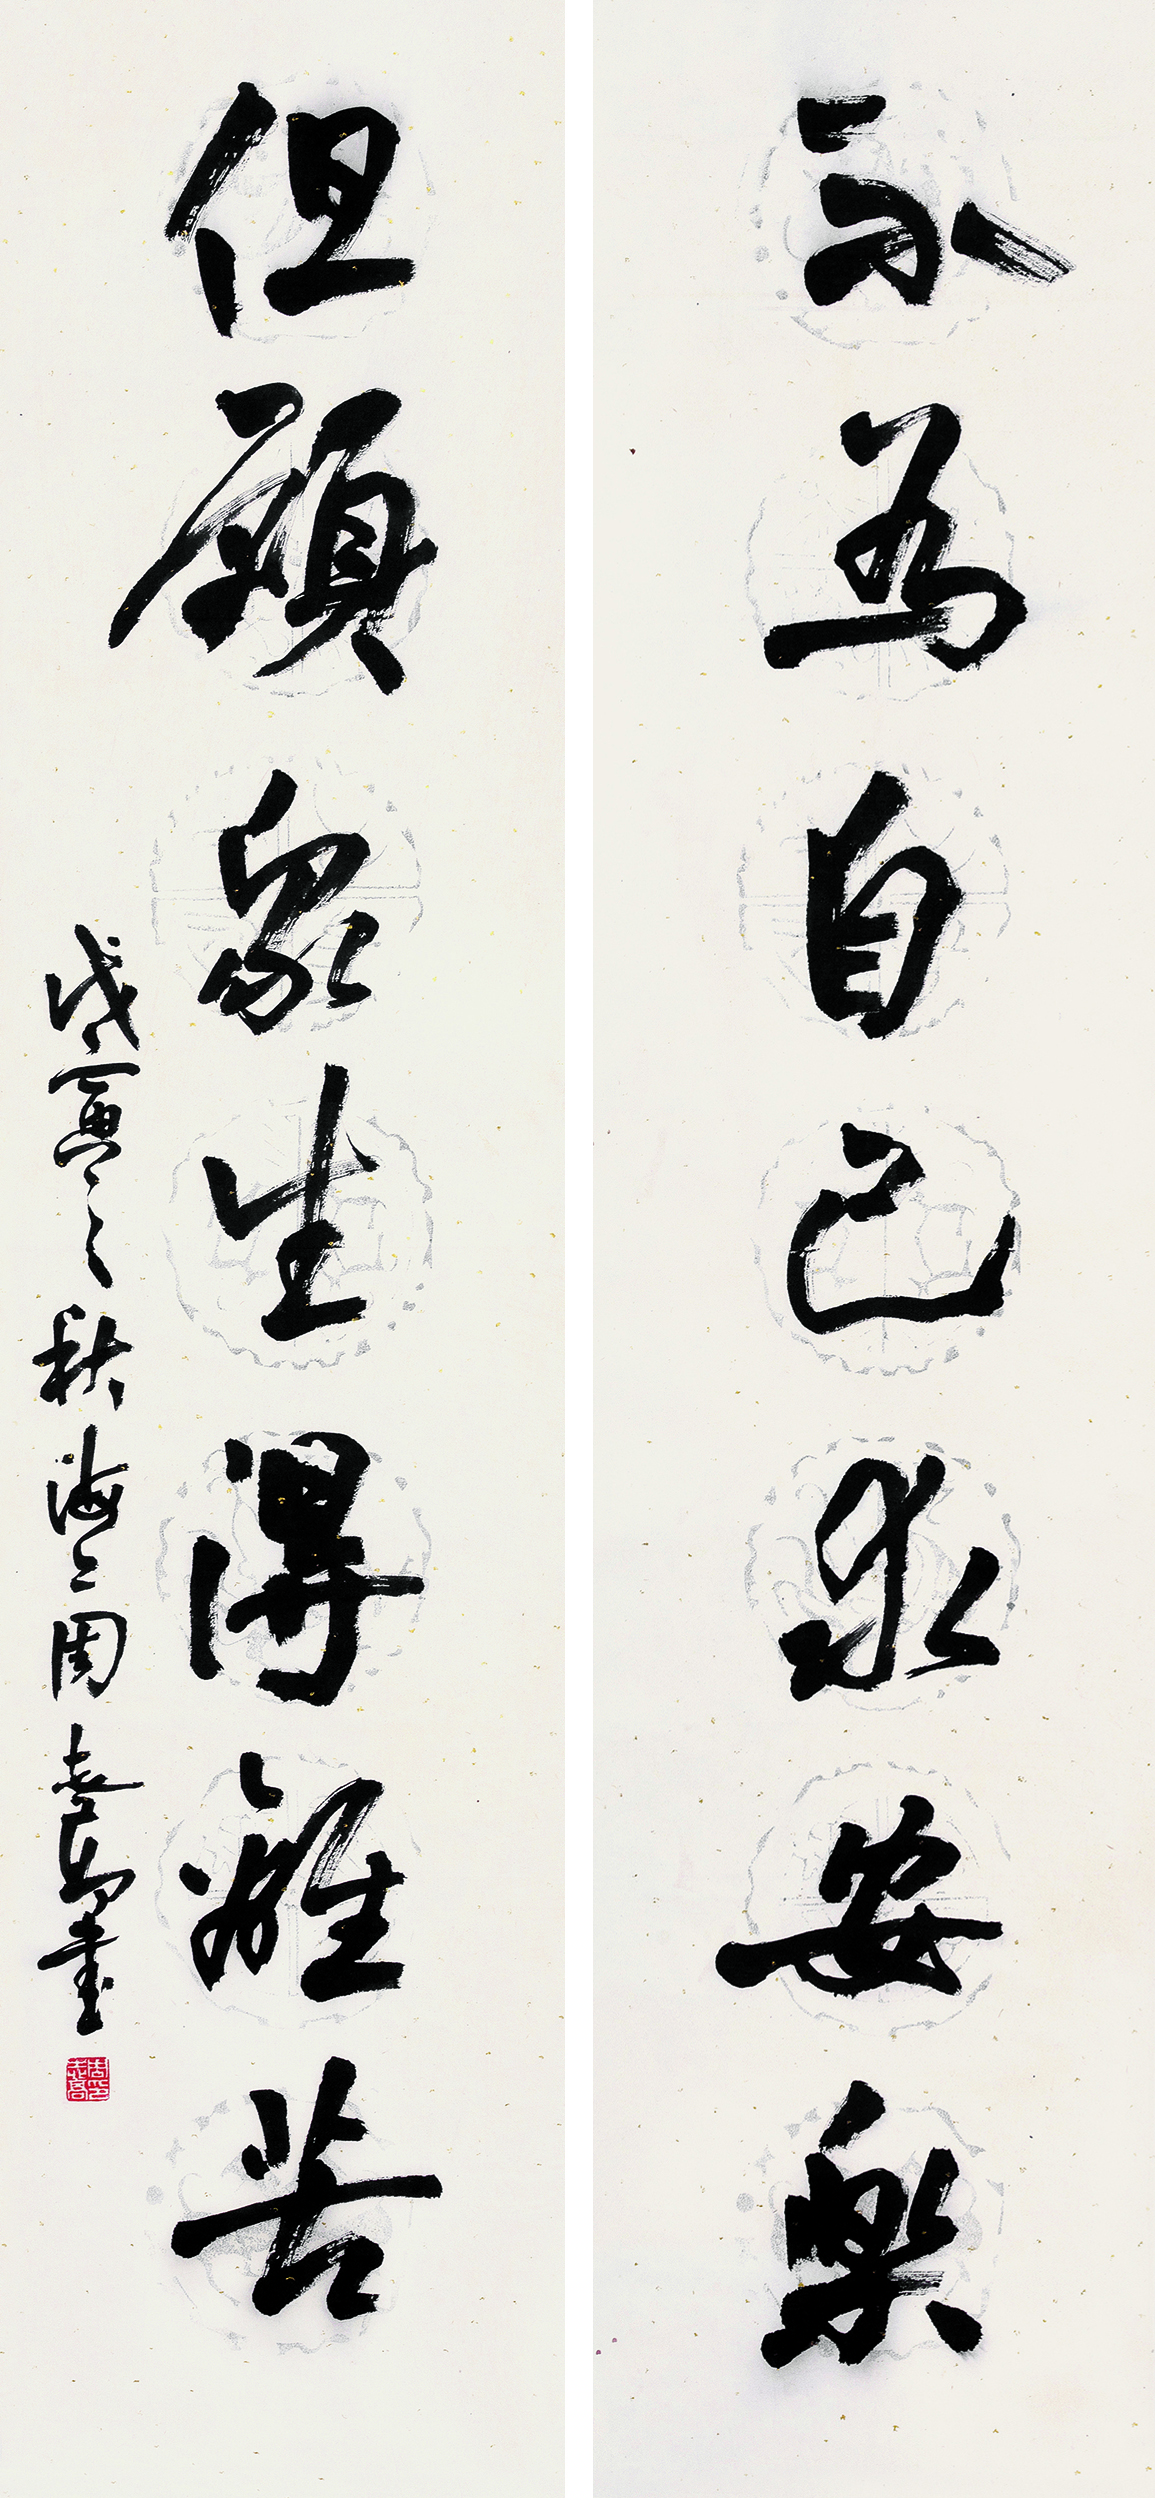 不為自己求安樂
但願眾生得離苦
戊寅之秋海上周志高書
周印志高